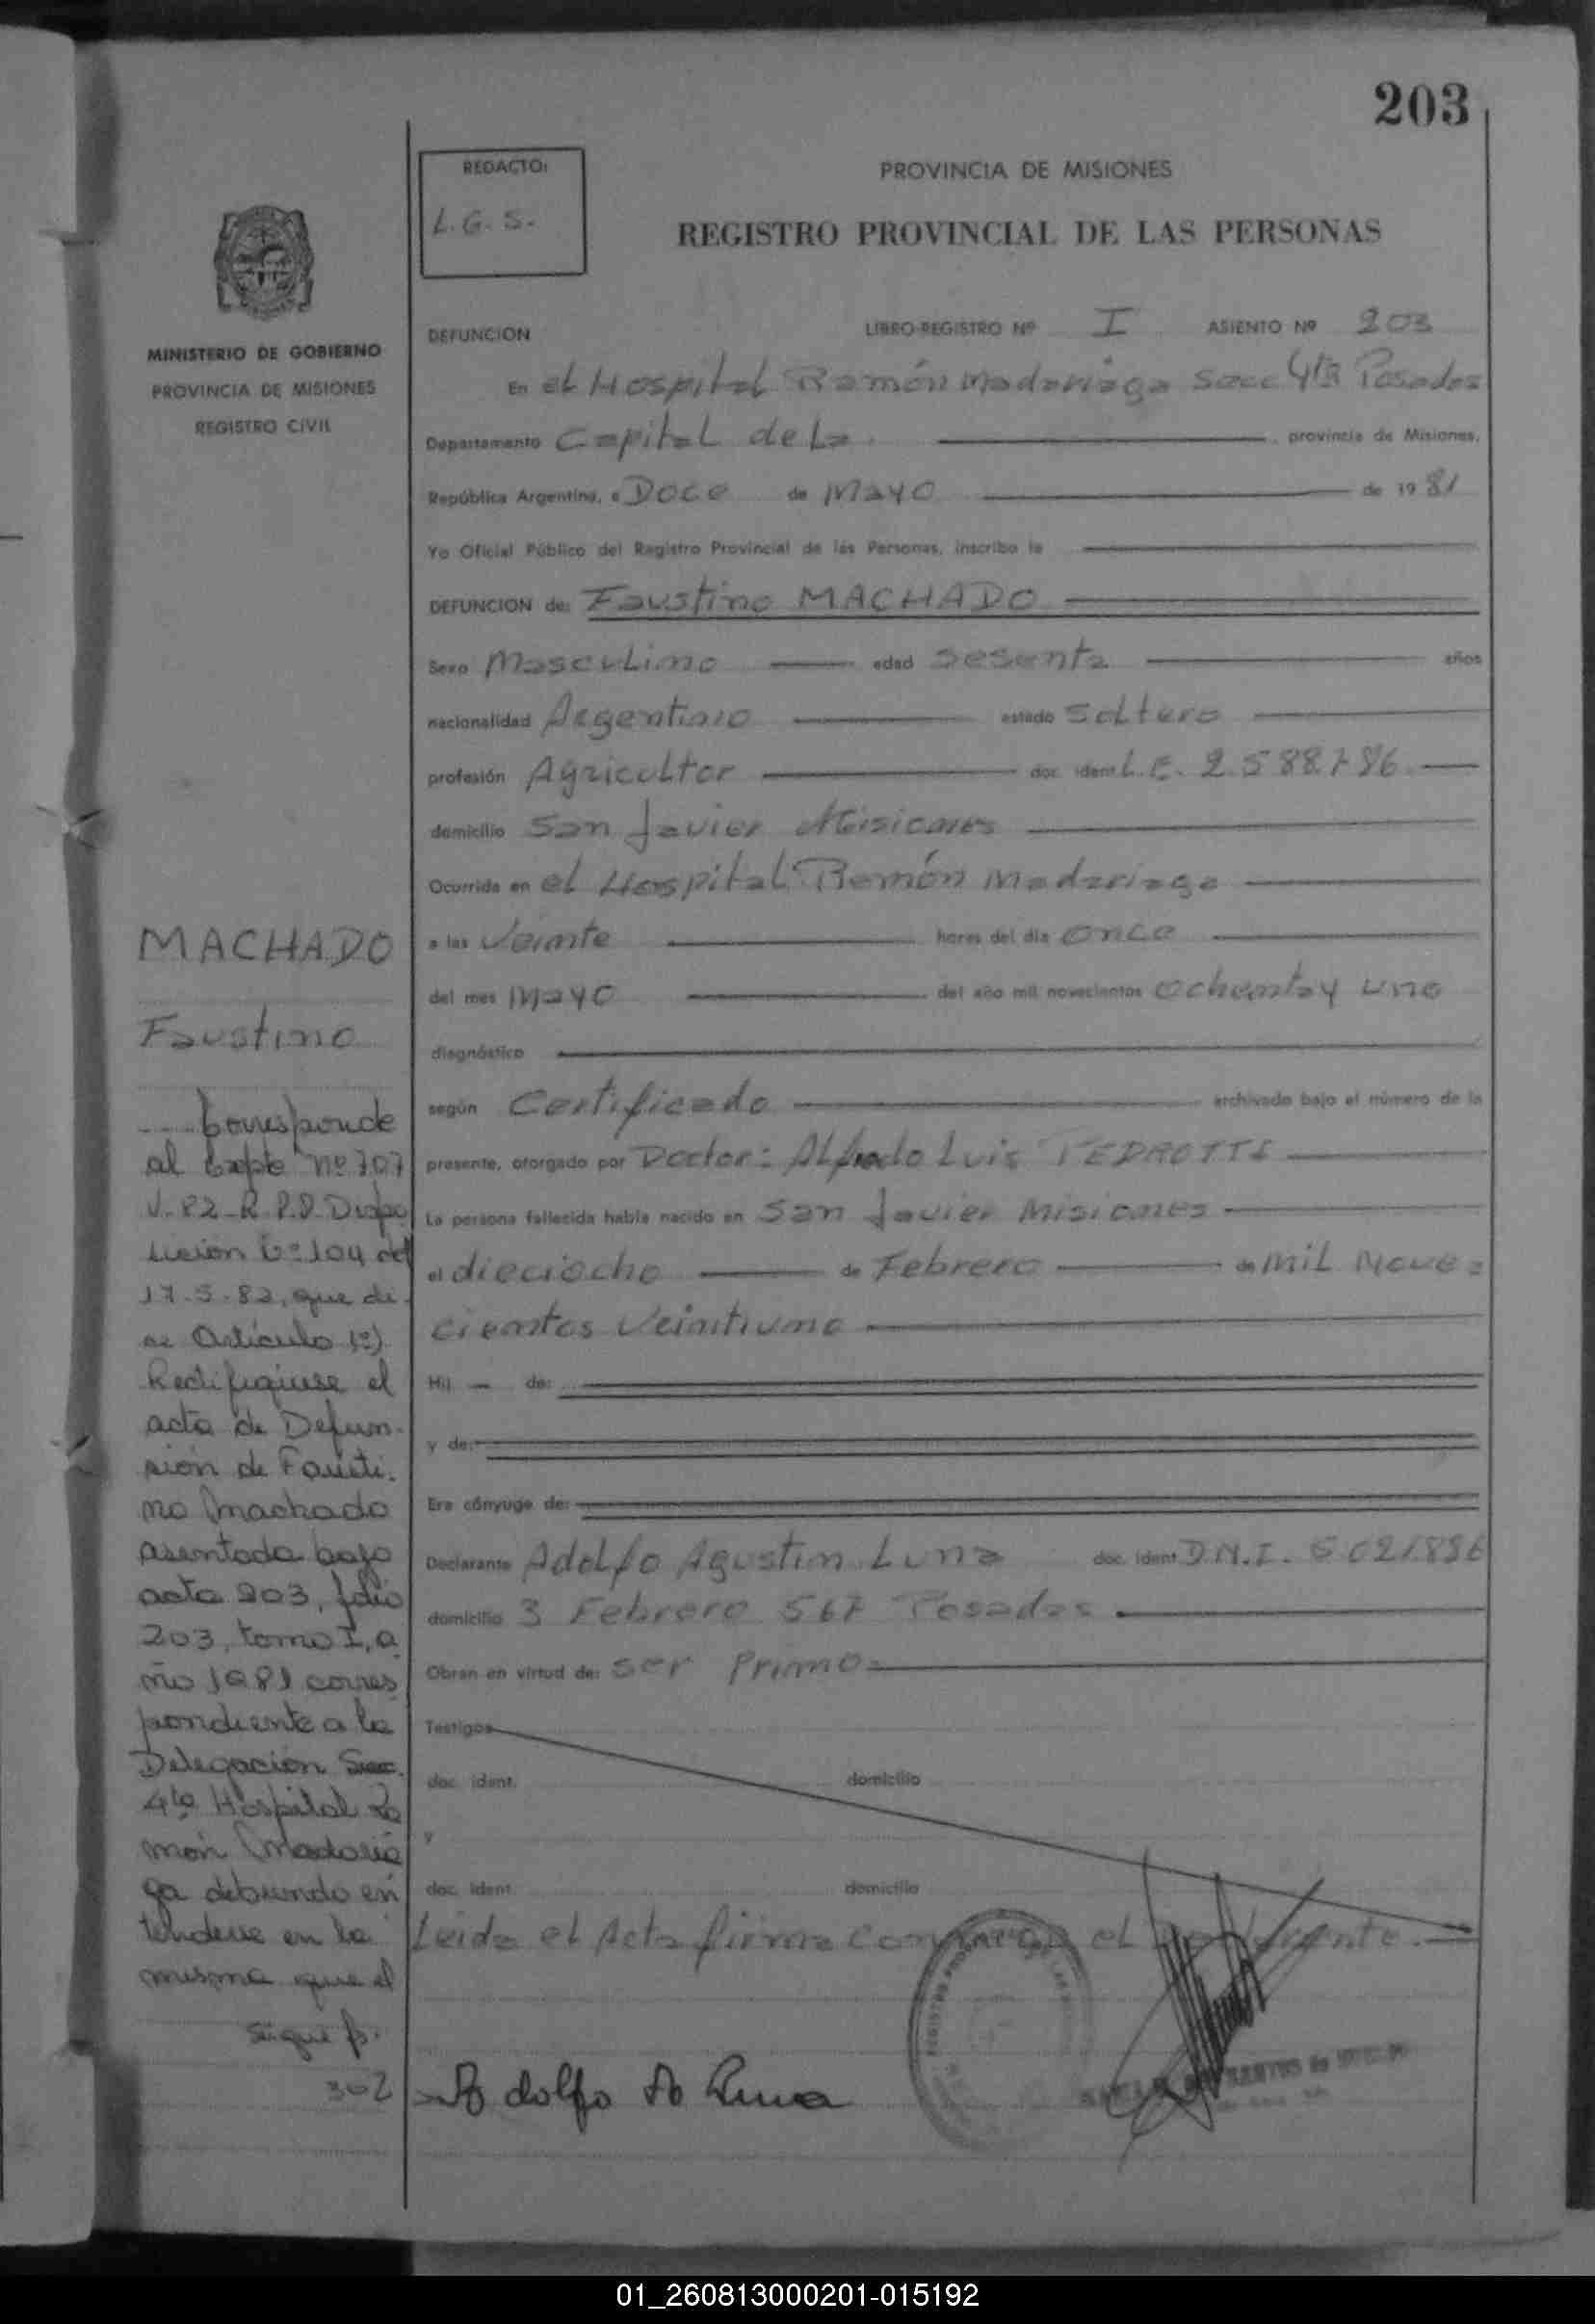 203
REDACTO:
L.G.S.
PROVINCIA DE MISIONES
REGISTRO PROVINCIAL DE LAS PERSONAS
MINISTERIO DE GOBIERNO
PROVINCIA DE MISIONES
REGISTRO CIVIL
DEFUNCION LIBRO-REGISTRO Nº I ASIENTO Nº 203
En el Hospital Ramón Madariaga Secc 4ta Posadas
Departamento Capital de La provincia de Misiones.
República Argentina, a Doce de Mayo de 1981
Yo Oficial Público del Registro Provincial de las Personas, inscribo la
DEFUNCION de: Faustino MACHADO
Sexo Masculino edad Sesenta años
nacionalidad Argentino estado Soltero
profesión Agricultor doc. ident. L.E. 2.588.786
domicilio San Javier Misiones
Ocurrida en el Hospital Ramón Madariaga
a las Veinte horas del día once
del mes Mayo del año mil novecientos Ochenta y uno
diagnóstico
según Certificado archivado bajo el número de la
presente, otorgado por Doctor: Alfredo Luis PEDROTTI
La persona fallecida había nacido en San Javier Misiones
el dieciocho de Febrero de Mil Nove=
cientos Veintiuno
Hij — de:
y de:
Era cónyuge de:
Declarante Adolfo Agustin Luna doc. ident. D.N.I.
domicilio 3 Febrero 567 Posadas
Obran en virtud de: Ser Primo
Testigos
doc. ident. domicilio
y
doc. ident. domicilio
Leida el Acta firma conmigo el
Adolfo A Luna
MACHADO
Faustino
Corresponde
al Expte Nº 707
V-82-R.P.P. Dispo
sición Nº 104 del
17.5.82, que di-
ce Artículo 1º)
Rectifiquese el
acta de Defun-
sión de Fausti-
no Machado
asentada bajo
acta 203, folio
203, tomo I, a
ño 1981 corres
pondiente a la
Delegación Secc.
4ta Hospital Ra
món Madaria
ga debiendo en
tenderse en la
misma que el
sigue f.
302
01_260813000201-015192